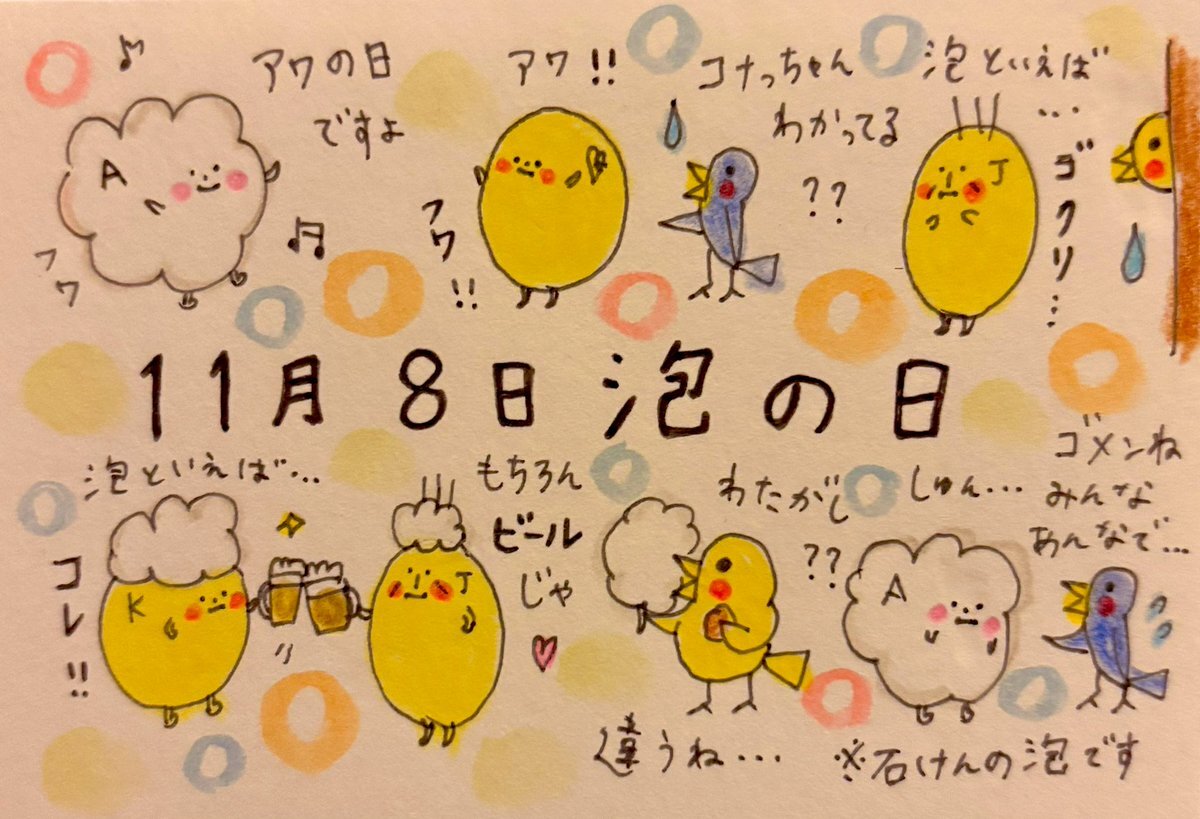 アワの日
ですよ
A
フワ
アワ!!
フワ!!
コナっちゃん
わかってる
??
泡といえば
...
J
ゴクリ...
11月8日泡の日
泡といえば...
コレ!!
K
J
もちろん
ビール
じゃ
わたがし
??
違うね...
しゅん...
A
ゴメンね
みんな
あんなで...
※石けんの泡です